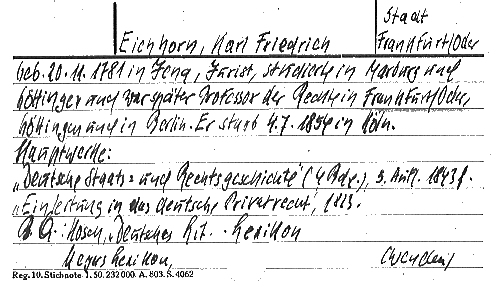 Stadt
Eichhorn, Karl Friedrich Frankfurt/Oder
geb. 20.11.1781 in Jena, Jurist, studierte in Marburg und
Göttingen und war später Professor der Rechte in Frankfurt/Oder,
Göttingen und in Berlin. Er starb 4.7.1854 in Köln.
Hauptwerke:
"Deutsche Staats- und Rechtsgeschichte" (4 Bde.), 5. Aufl. 1843f.
"Einleitung in das deutsche Privatrecht", 1823.
Kosch, Deutsches Lit. Lexikon
Meyers Lexikon,
Reg. 10. Stichnote 1. 50. 232000. A. 803. S. 4062